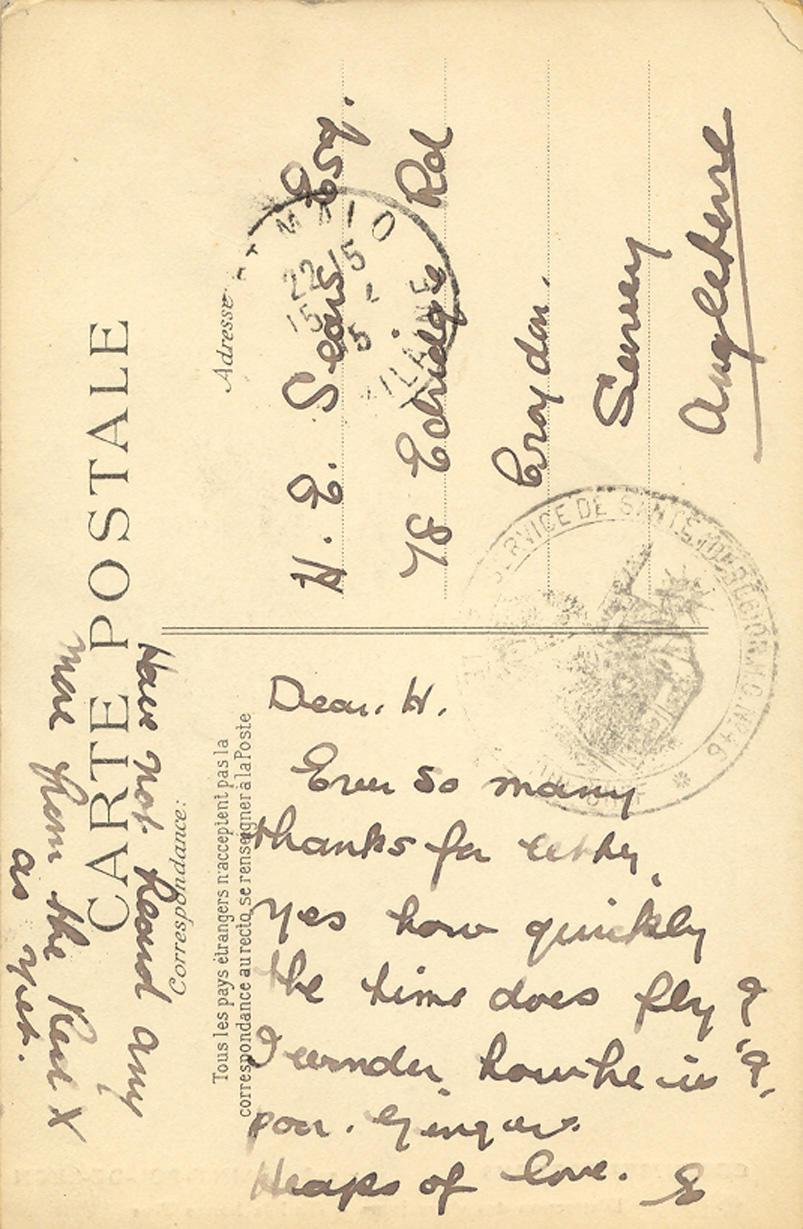 CARTE POSTALE
Correspondance:
Adresse
Tous les pays étrangers n'acceptent pas la
correspondance au recto, se renseigner à la Poste
H. E. Sears Esq.
78 Edridge Rd
Croydon,
Surrey
Angleterre
MALO
22
15
5
15
VILAINE
SERVICE DE SANTÉ
Dear. H.
Ever so many
thanks for letter,
yes how quickly
the time does fly
I wonder how he is
poor. Ginger.
Heaps of love. E
Have not heard any
more from the Red X
as yet.